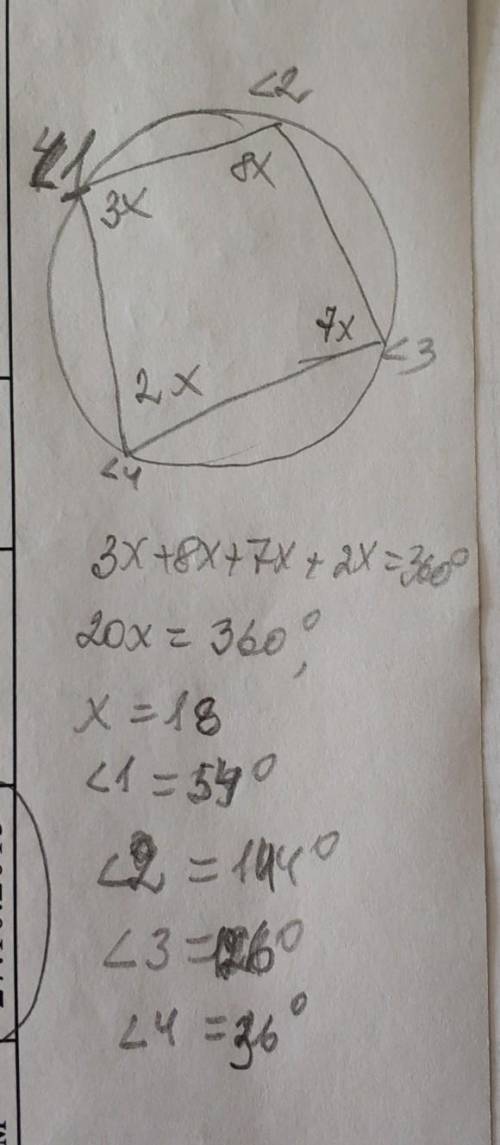 ∠2
∠1
8x
3x
7x
∠3
2x
∠4
3x+8x+7x+2x=360°
20x=360°,
x=18
∠1=54°
∠2=144°
∠3=126°
∠4=36°